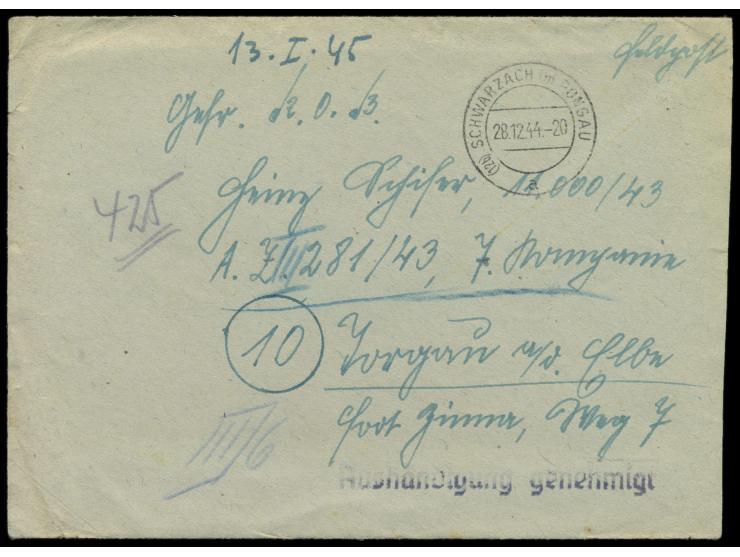 13. I. 45
Feldpost
SCHWARZACH im PONGAU
28.12.44.-20
(12b)
a
Gefr. d. R. O. B.
Heinz Schifer, 11.000/43
425
A. Z. III 281/43, 7. Kompanie
10 Torgau a/d. Elbe
Fort Zinna, Weg 7
III/6
Aushändigung genehmigt